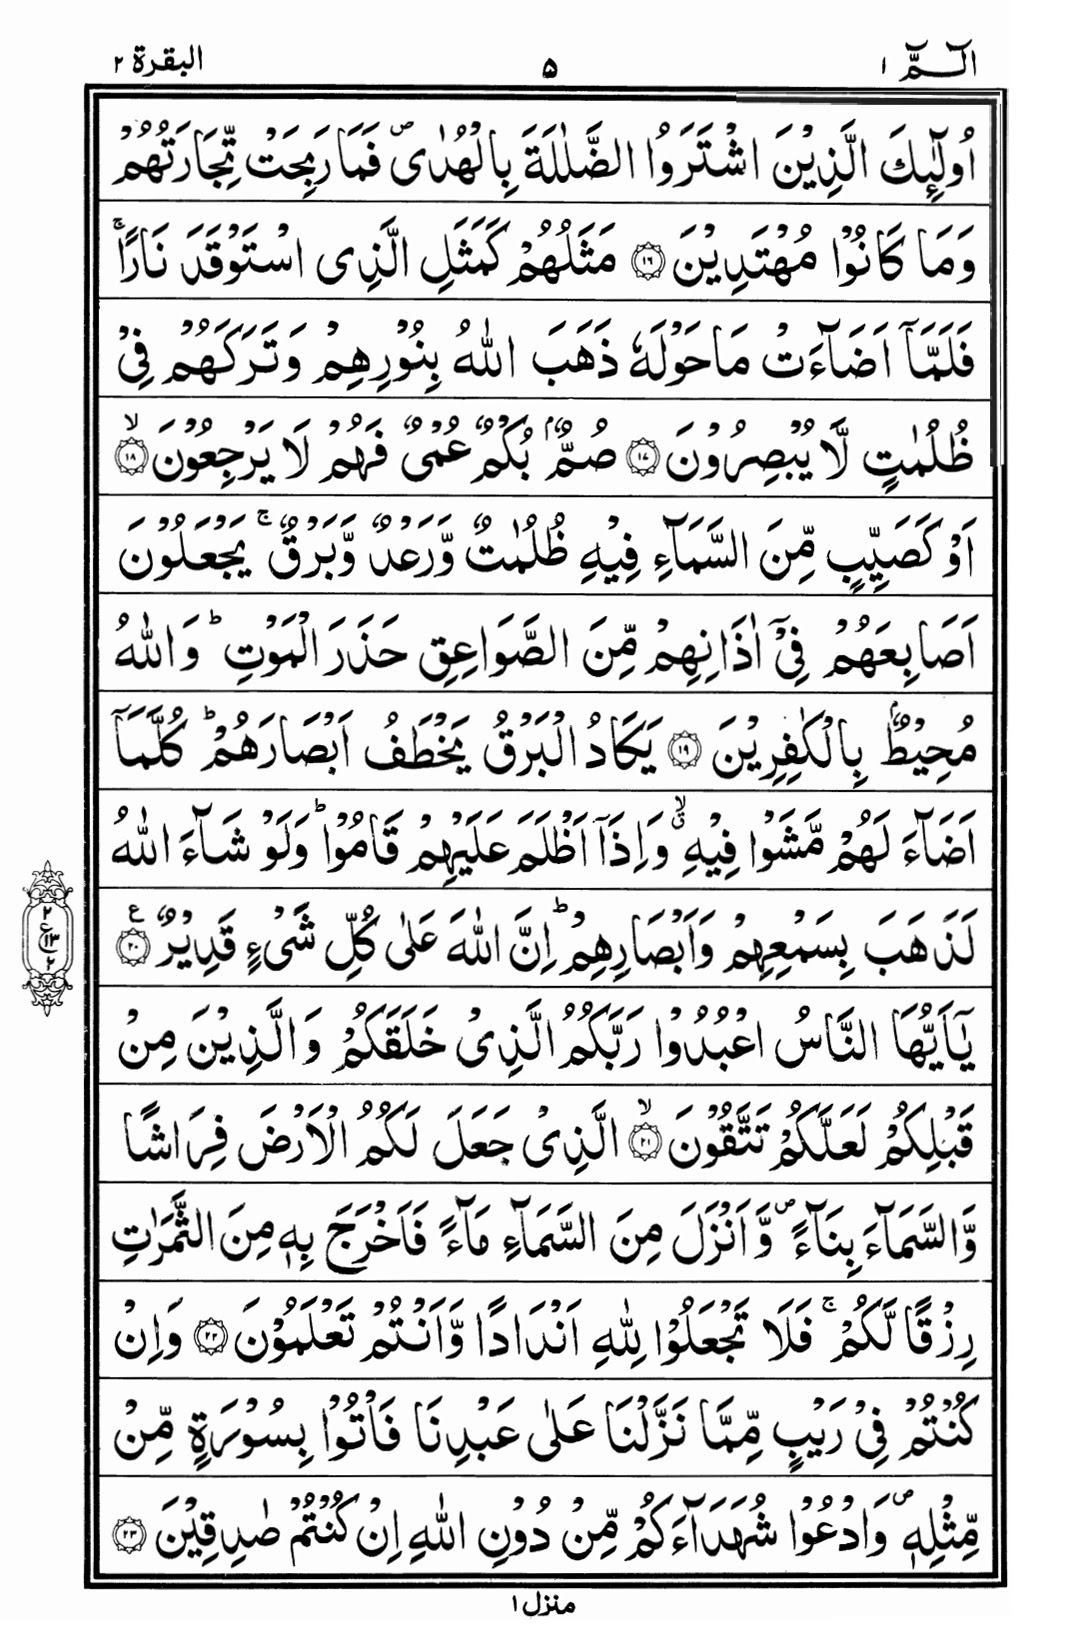 الٓـمّٓ ١
۵
البقرة ٢
اُولٰٓئِكَ الَّذِيْنَ اشْتَرَوُا الضَّلٰلَةَ بِالْهُدٰى ۖ فَمَا رَبِحَتْ تِّجَارَتُهُمْ
وَمَا كَانُوْا مُهْتَدِيْنَ ﴿١٦﴾ مَثَلُهُمْ كَمَثَلِ الَّذِى اسْتَوْقَدَ نَارًا ۚ
فَلَمَّآ اَضَآءَتْ مَا حَوْلَهٗ ذَهَبَ اللّٰهُ بِنُوْرِهِمْ وَتَرَكَهُمْ فِيْ
ظُلُمٰتٍ لَّا يُبْصِرُوْنَ ﴿١٧﴾ صُمٌّۢ بُكْمٌ عُمْىٌ فَهُمْ لَا يَرْجِعُوْنَ ۙ ﴿١٨﴾
اَوْ كَصَيِّبٍ مِّنَ السَّمَآءِ فِيْهِ ظُلُمٰتٌ وَّرَعْدٌ وَّبَرْقٌ ۚ يَجْعَلُوْنَ
اَصَابِعَهُمْ فِيْٓ اٰذَانِهِمْ مِّنَ الصَّوَاعِقِ حَذَرَ الْمَوْتِ ؕ وَاللّٰهُ
مُحِيْطٌۢ بِالْكٰفِرِيْنَ ﴿١٩﴾ يَكَادُ الْبَرْقُ يَخْطَفُ اَبْصَارَهُمْ ؕ كُلَّمَآ
اَضَآءَ لَهُمْ مَّشَوْا فِيْهِ ۙۗ وَاِذَآ اَظْلَمَ عَلَيْهِمْ قَامُوْا ؕ وَلَوْ شَآءَ اللّٰهُ
لَذَهَبَ بِسَمْعِهِمْ وَاَبْصَارِهِمْ ؕ اِنَّ اللّٰهَ عَلٰى كُلِّ شَىْءٍ قَدِيْرٌ ع ﴿٢٠﴾
٢ ع ١٣ ٢
يٰٓاَيُّهَا النَّاسُ اعْبُدُوْا رَبَّكُمُ الَّذِىْ خَلَقَكُمْ وَالَّذِيْنَ مِنْ
قَبْلِكُمْ لَعَلَّكُمْ تَتَّقُوْنَ ۙ ﴿٢١﴾ الَّذِىْ جَعَلَ لَكُمُ الْاَرْضَ فِرَاشًا
وَّالسَّمَآءَ بِنَآءً ۪ وَّاَنْزَلَ مِنَ السَّمَآءِ مَآءً فَاَخْرَجَ بِهٖ مِنَ الثَّمَرٰتِ
رِزْقًا لَّكُمْ ۚ فَلَا تَجْعَلُوْا لِلّٰهِ اَنْدَادًا وَّاَنْتُمْ تَعْلَمُوْنَ ﴿٢٢﴾ وَاِنْ
كُنْتُمْ فِيْ رَيْبٍ مِّمَّا نَزَّلْنَا عَلٰى عَبْدِنَا فَاْتُوْا بِسُوْرَةٍ مِّنْ
مِّثْلِهٖ ۪ وَادْعُوْا شُهَدَآءَكُمْ مِّنْ دُوْنِ اللّٰهِ اِنْ كُنْتُمْ صٰدِقِيْنَ ﴿٢٣﴾
منزل ١